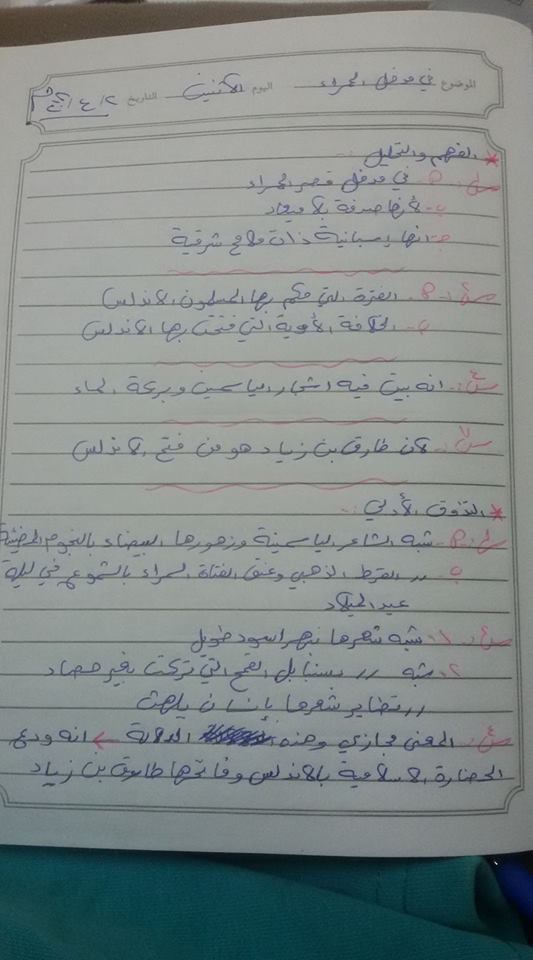 الموضوع في مدخل الحمراء اليوم الاثنين التاريخ ٢ / ٤
* الفهم والتحليل :-
س١:- أ- في مدخل قصر الحمراء
ب- لأنها صدفة بلا ميعاد
ج- انها إسبانية ذات ملامح شرقية
أ- الفترة التي حكم بها المسلمون الاندلس
ب- الخلافة الأموية التي فتحت بها الاندلس
س٤:- انه بيت فيه اشجار الياسمين وبركة الماء
س٧:- لان طارق بن زياد هو من فتح الاندلس
* التذوق الأدبي :-
س١:- أ- شبه الشاعر الياسمينة وزهورها البيضاء بالنجوم المضيئة
ب- // القرط الذهبي وعنق الفتاة السمراء بالشموع في ليلة
عيد الميلاد
١- شبه شعرها بنهر اسود طويل
٢- شبه // بسنابل القمح التي تركت بغير حصاد
// تطاير شعرها بإنسان يلهث
س٤:- المعنى مجازي وهذه الدلالة ← انه ودع
الحضارة الاسلامية بالاندلس وفاتحها طارق بن زياد